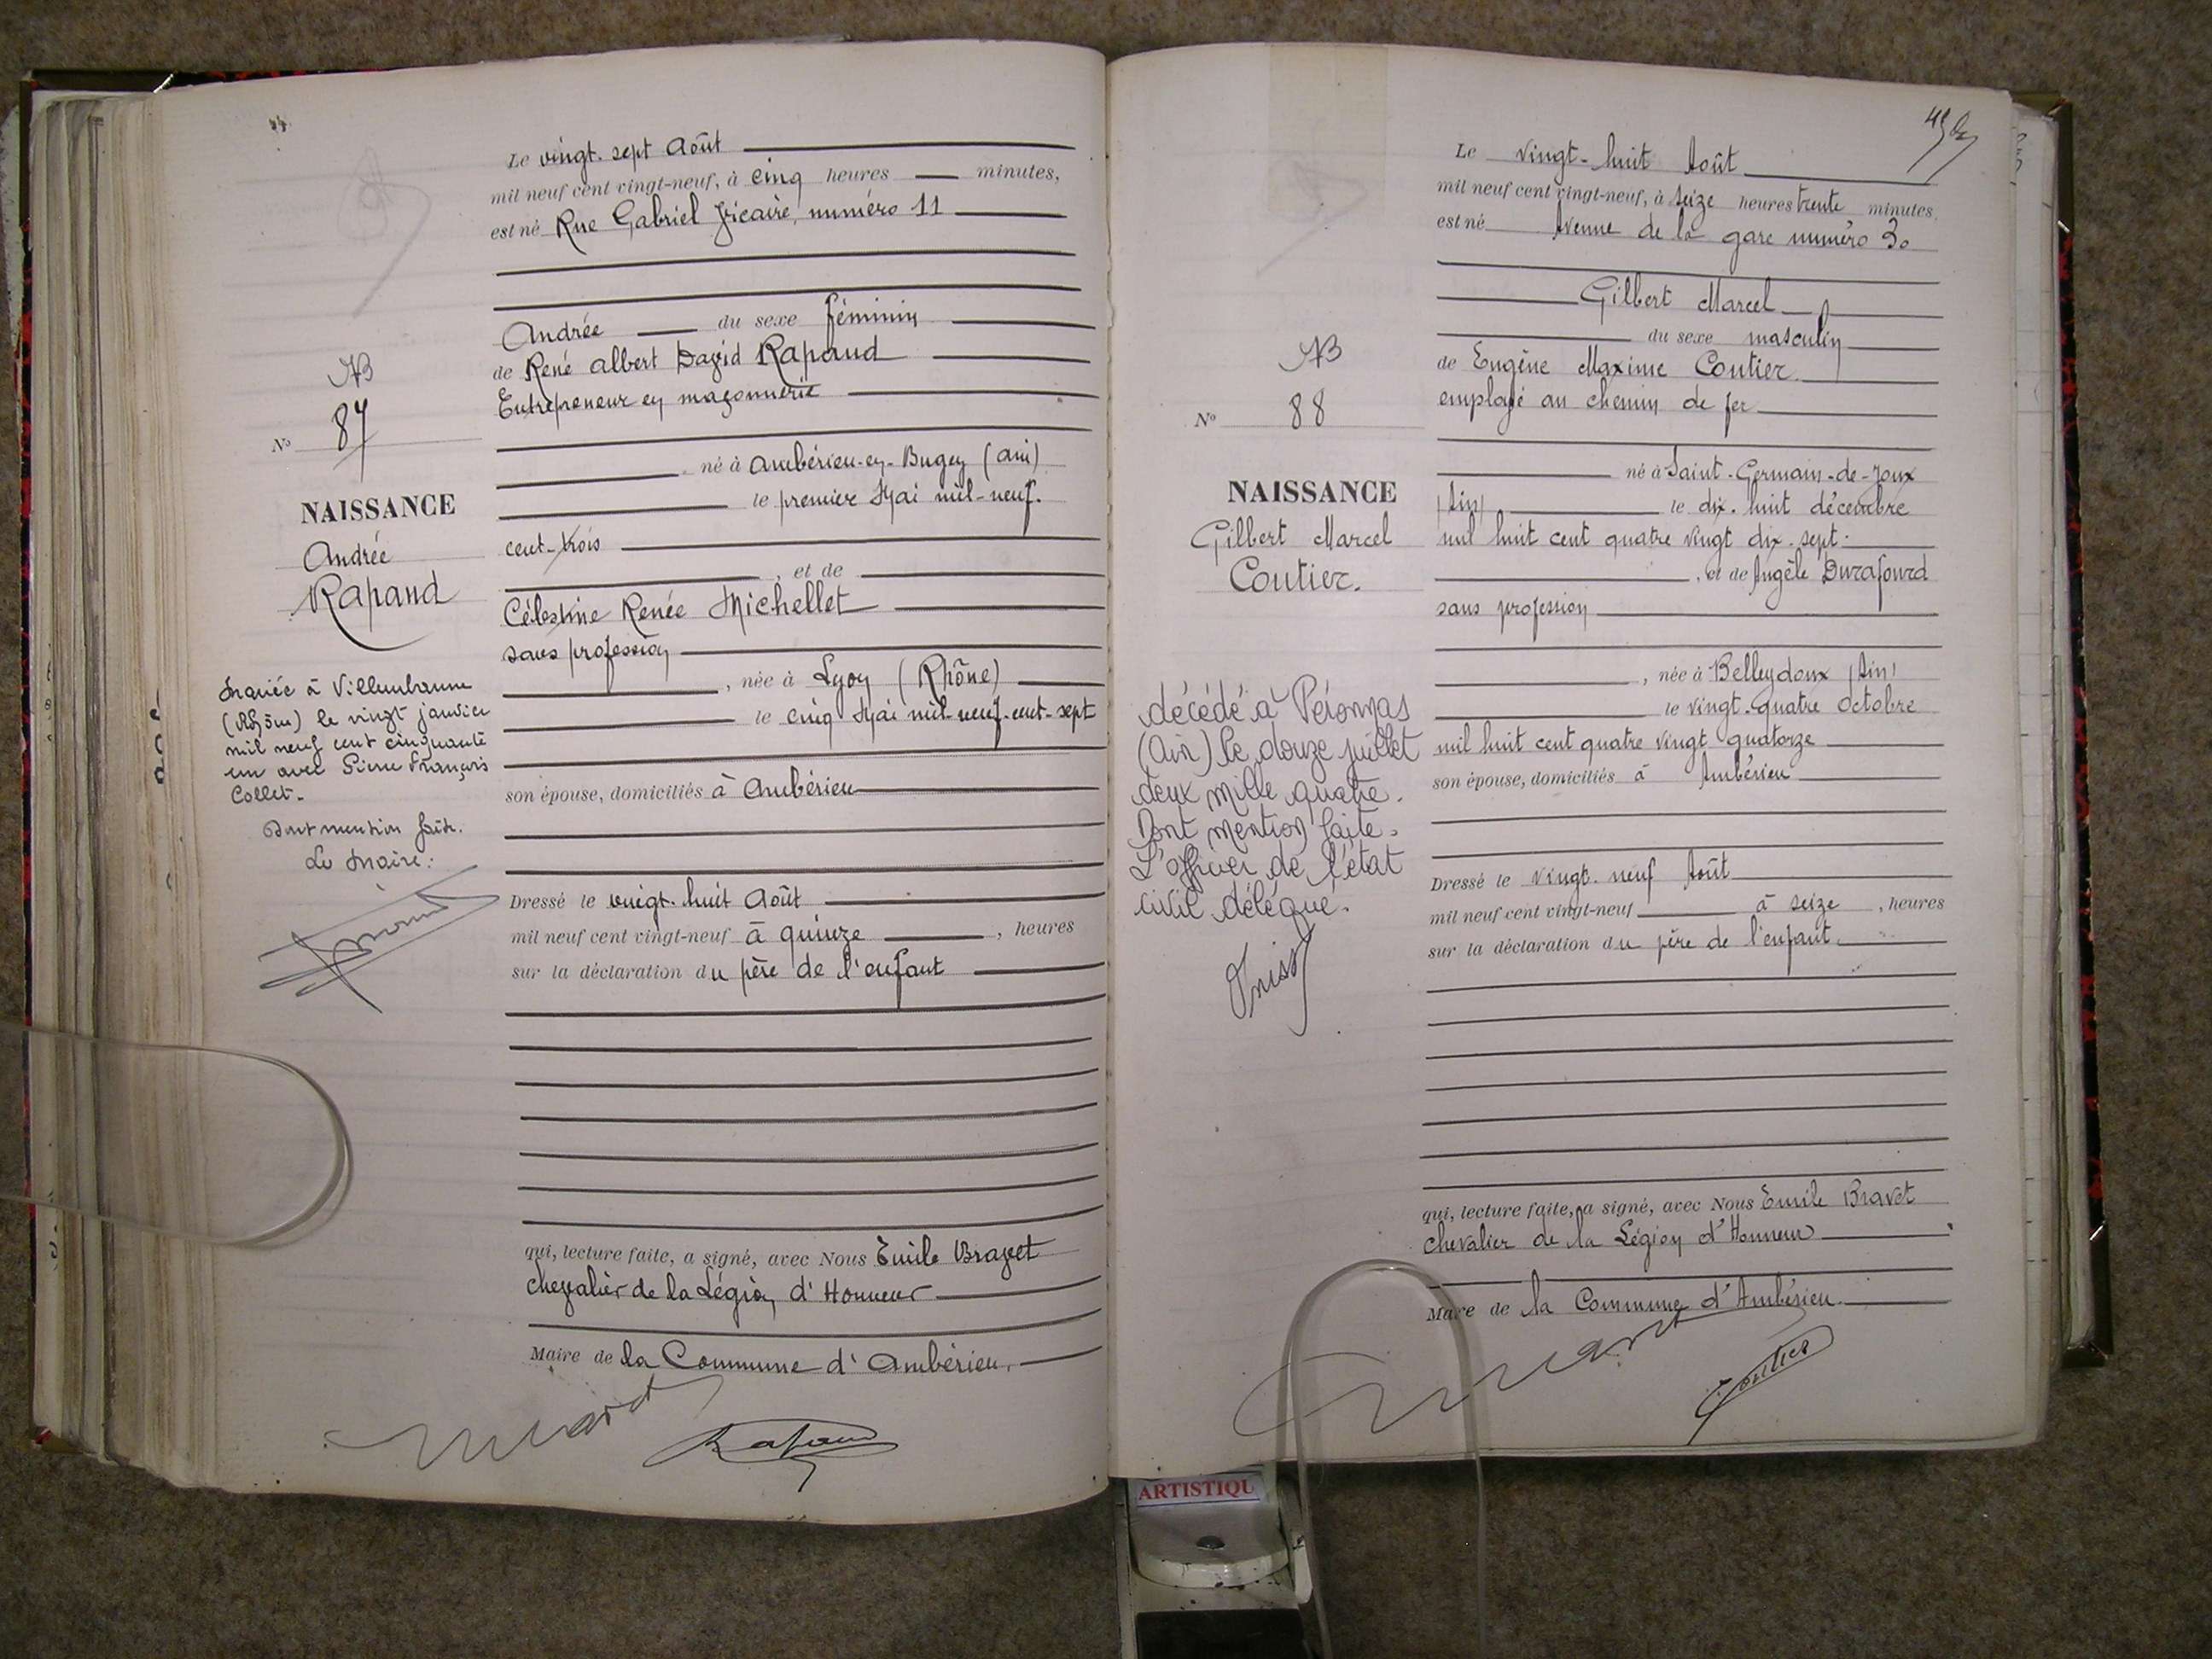 Le vingt-sept Août
mil neuf cent vingt-neuf, à cinq heures — minutes,
est né Rue Gabriel Vicaire, numéro 11
Andrée — du sexe féminin
de René Albert David Rapaud
Entrepreneur en maçonnerie
né à Ambérieu-en-Bugey (Ain)
le premier Mai mil-neuf-
cent-trois
, et de
Célestine Renée Michellet
sans profession
, née à Lyon (Rhône)
le cinq Mai mil-neuf-cent-sept
son épouse, domiciliés à Ambérieu
Dressé le vingt-huit Août
mil neuf cent vingt-neuf à quinze , heures
sur la déclaration du père de l'enfant
qui, lecture faite, a signé, avec Nous Emile Bravet
chevalier de la Légion d'Honneur
Maire de la Commune d'Ambérieu.
Rapaud
AB
No 87
NAISSANCE
Andrée
Rapaud
Mariée à Villeurbanne
(Rhône) le vingt janvier
mil neuf cent cinquante
un avec Pierre François
Collet.
Dont mention faite.
Le Maire:
45
Le vingt-huit Août
mil neuf cent vingt-neuf, à seize heures trente minutes,
est né Avenue de la gare numéro 30
Gilbert Marcel
du sexe masculin
de Eugène Maxime Coutier
employé au chemin de fer
né à Saint-Germain-de-Joux
(Ain) le dix-huit décembre
mil huit cent quatre vingt dix-sept
, et de Angèle Durafourd
sans profession
, née à Belleydoux (Ain)
le vingt-quatre Octobre
mil huit cent quatre vingt quatorze
son épouse, domiciliés à Ambérieu
Dressé le vingt-neuf Août
mil neuf cent vingt-neuf à seize , heures
sur la déclaration du père de l'enfant
qui, lecture faite, a signé, avec Nous Emile Bravet
chevalier de la Légion d'Honneur
Maire de la Commune d'Ambérieu.
Coutier
AB
No 88
NAISSANCE
Gilbert Marcel
Coutier.
décédé à Péronnas
(Ain) le douze juillet
deux mille quatre.
Dont mention faite.
L'officier de l'état
civil délégué.
ARTISTIQU